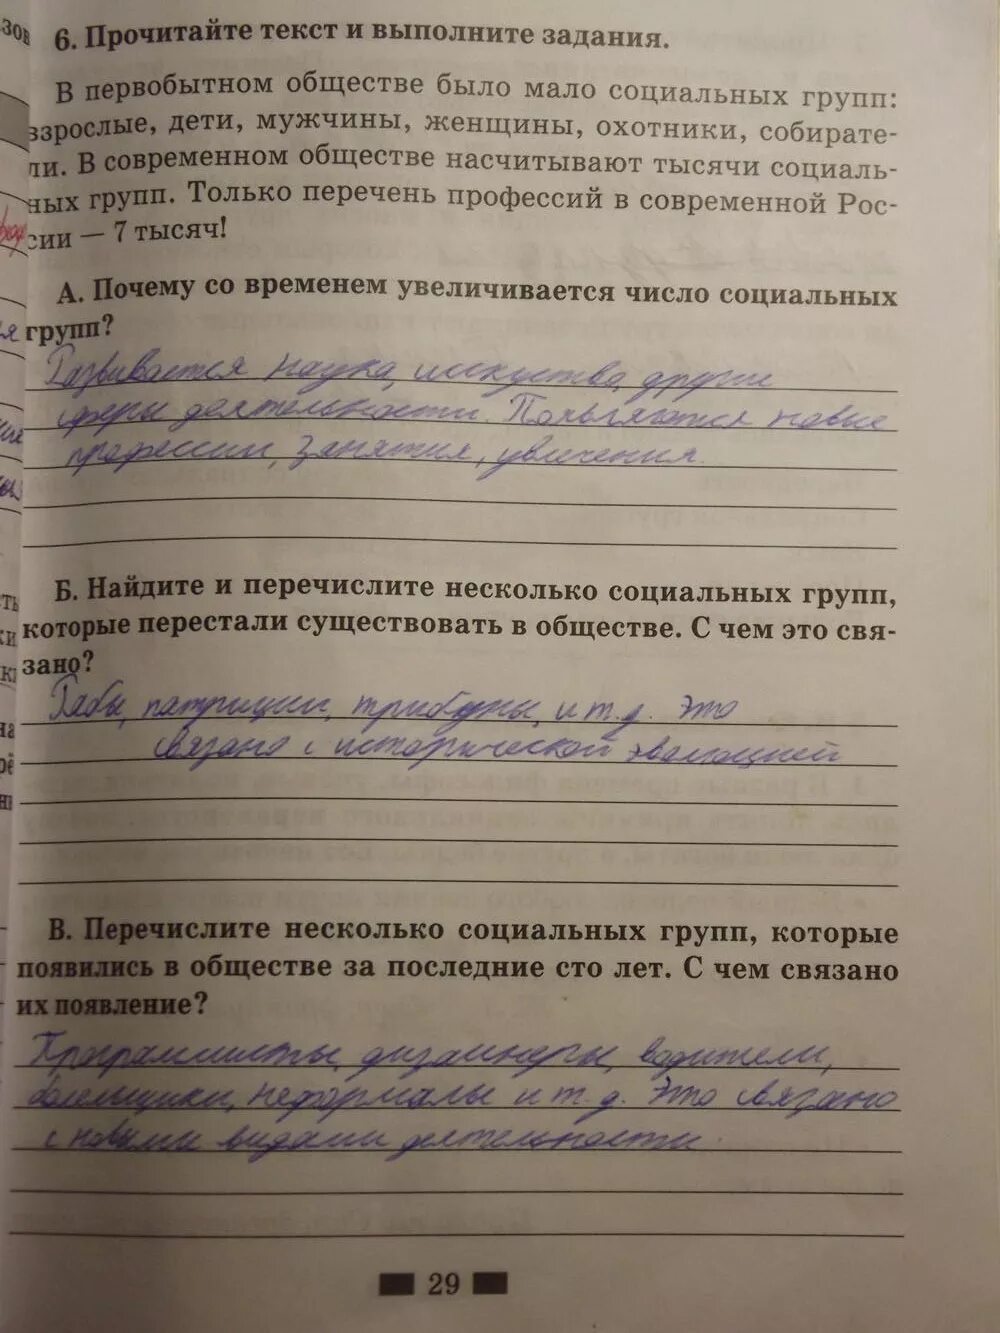 6. Прочитайте текст и выполните задания.
В первобытном обществе было мало социальных групп:
взрослые, дети, мужчины, женщины, охотники, собирате-
ли. В современном обществе насчитывают тысячи социаль-
ных групп. Только перечень профессий в современной Рос-
сии — 7 тысяч!
А. Почему со временем увеличивается число социальных
групп?
Развивается наука, искусство, другие
сферы деятельности. Появляются новые
профессии, занятия, увлечения.
Б. Найдите и перечислите несколько социальных групп,
которые перестали существовать в обществе. С чем это свя-
зано?
Рабы, патриции, трибуны, и т.д. Это
связано с исторической эволюцией
В. Перечислите несколько социальных групп, которые
появились в обществе за последние сто лет. С чем связано
их появление?
Программисты, дизайнеры, водители,
болельщики, неформалы и т.д. Это связано
с новыми видами деятельности.
29